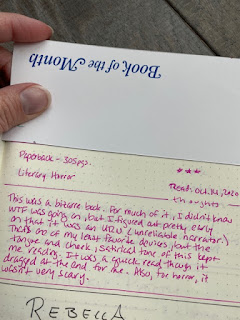 Book of the Month
Paperback - 305pgs.
Literary Horror
***
Read: Oct. 14, 2020
Thoughts
This was a bizarre book. For much of it, I didn't know
WTF was going on, but I figured out pretty early
on that it was an U.N. (unreliable narrator.)
That's one of my least favorite devices, but the
tongue and check, satirical tone of this kept
me reading. It was a quick read though it
dragged at the end for me. Also, for horror, it
wasn't very scary.
REBECCA